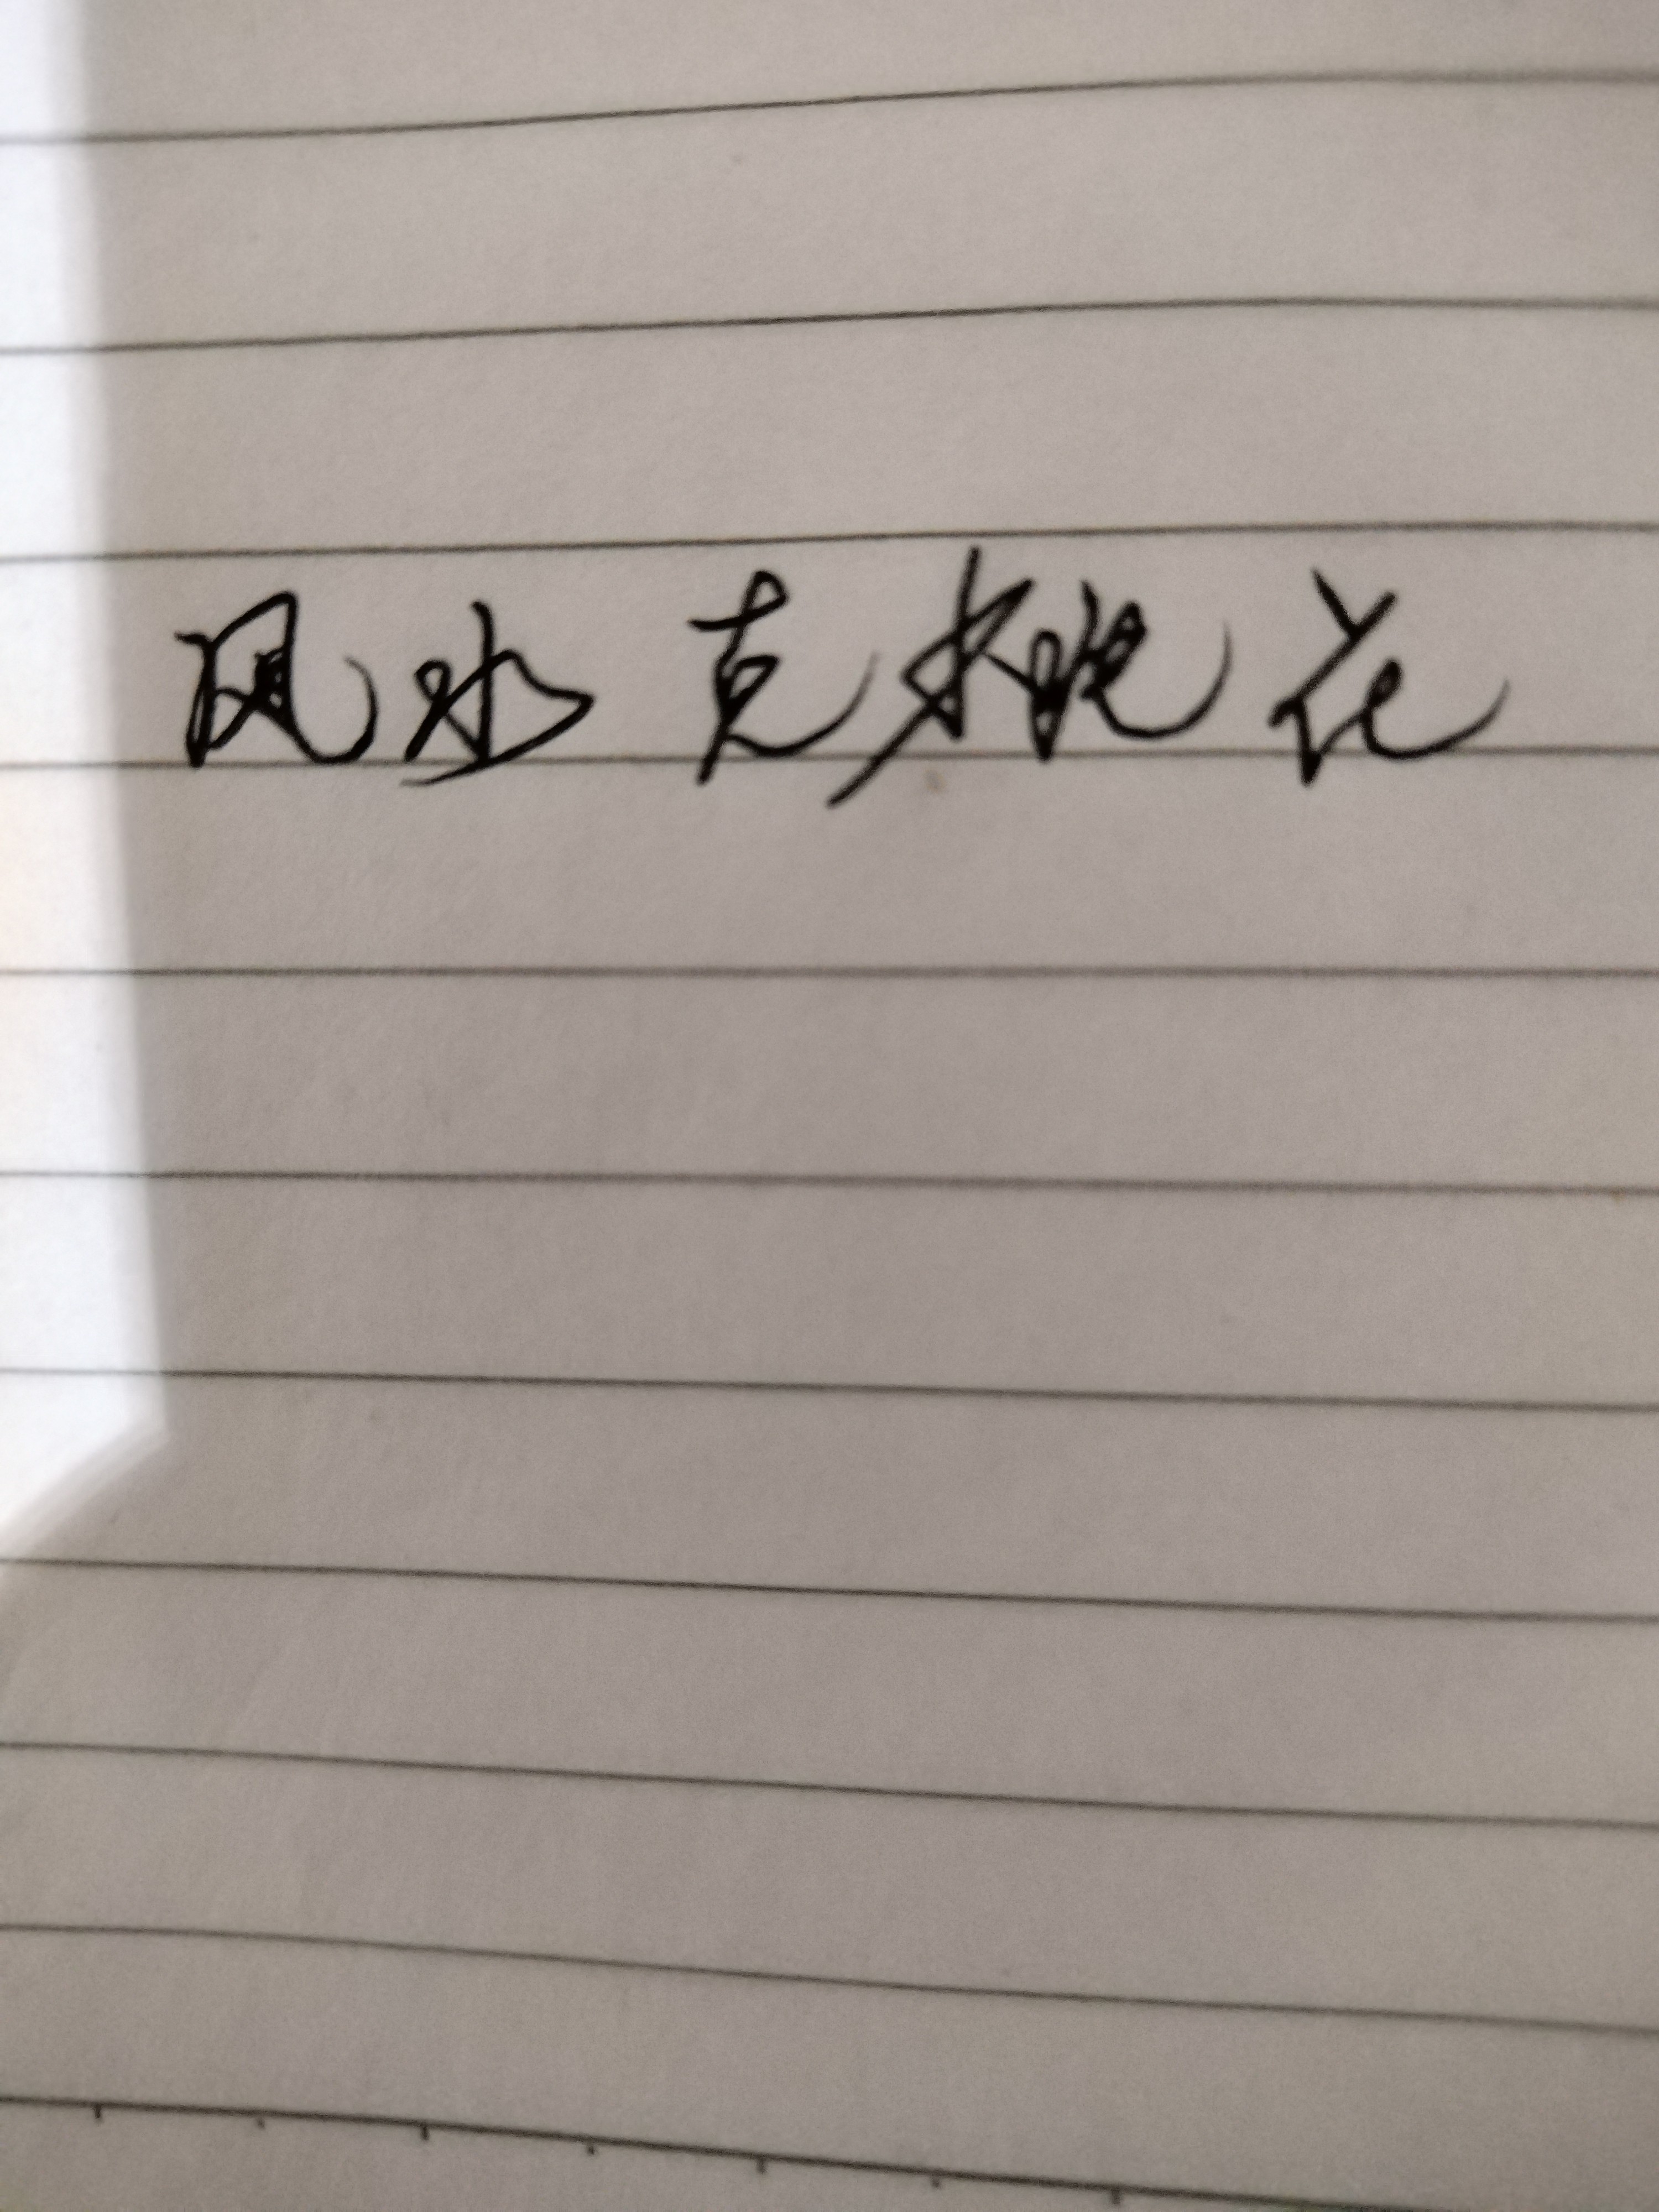 风水克桃花